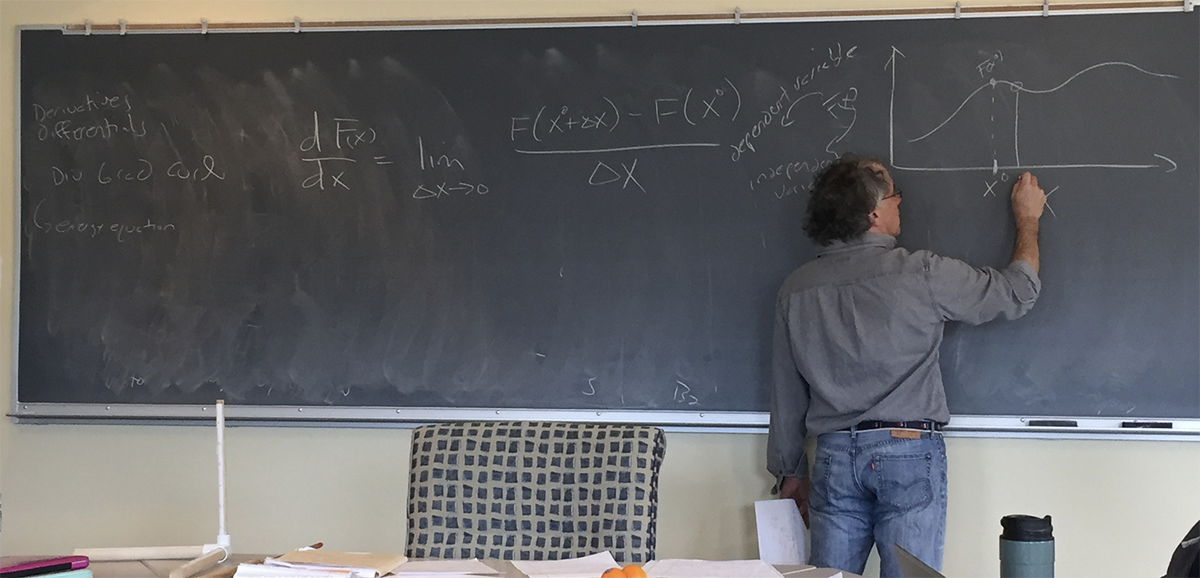 Derivatives
Differentials
Div Grad Curl
energy equation
dF(x)/dx = lim Δx→0 (F(x⁰+Δx) - F(x⁰))/Δx
dependent variable
F(x)
F(x⁰)
x⁰
x